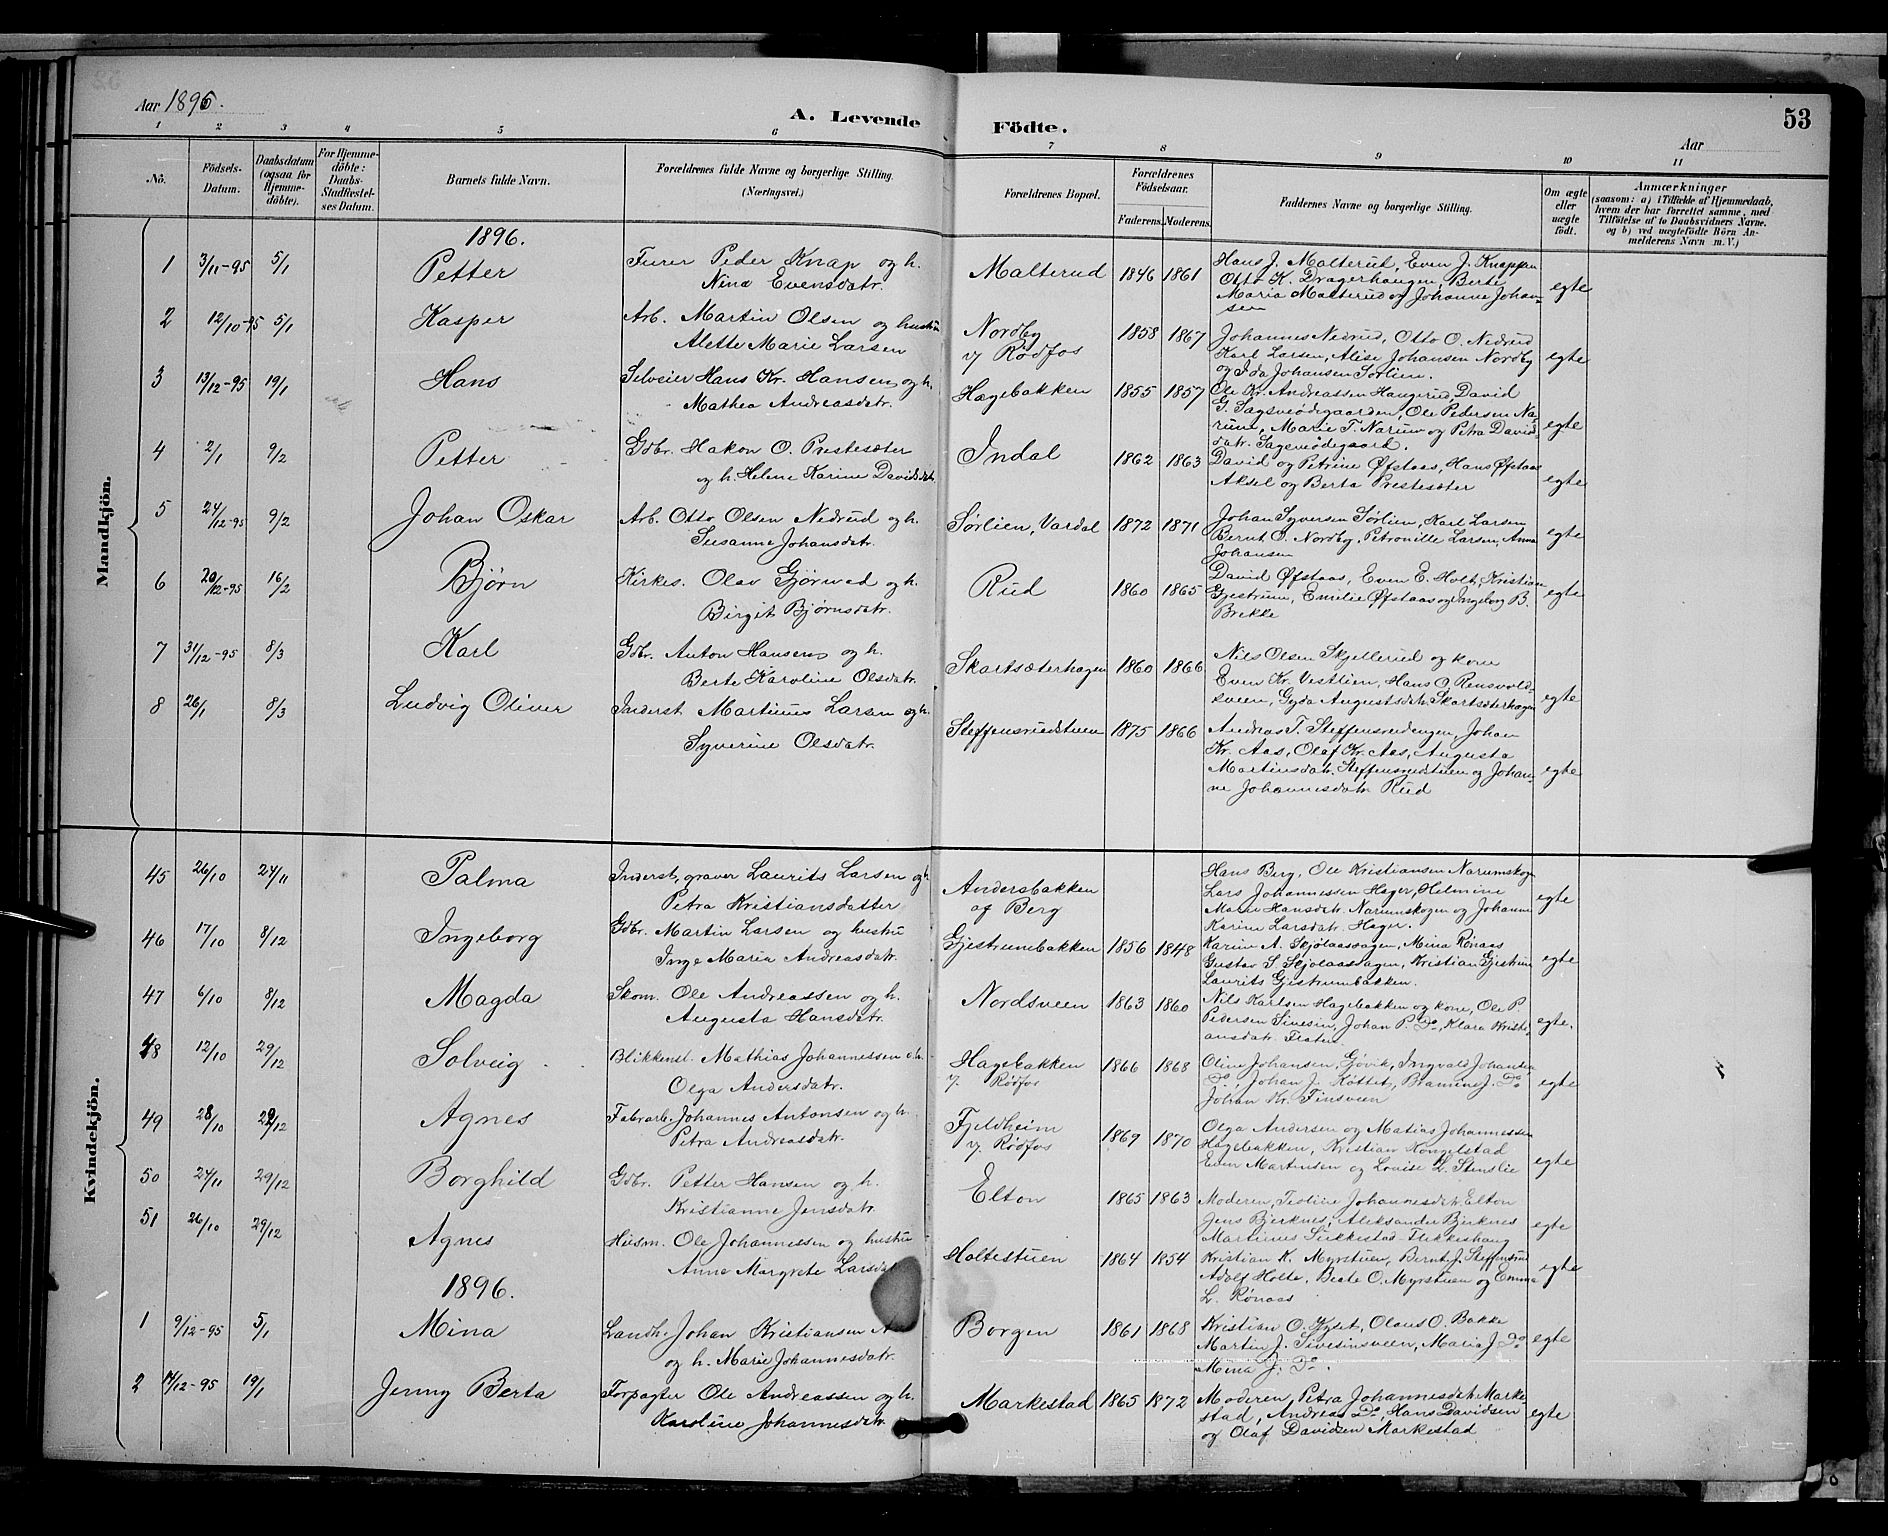 53
Aar 1895.
A. Levende Födte.
Aar
1 2 3 4 5 6 7 8 9 10 11
No.
Födsels-Datum.
Daabsdatum (ogsaa for Hjemme-döbte).
For Hjemme-döbte: Daabs-Stadfæstel-ses Datum.
Barnets fulde Navn.
Forældrenes fulde Navne og borgerlige Stilling. (Næringsvei.)
Forældrenes Bopæl.
Forældrenes Födselsaar.
Faderens. Moderens.
Faddernes Navne og borgerlige Stilling.
Om ægte eller uægte født.
Anmærkninger
(saasom: a) i Tilfælde af Hjemmedaab, hvem der har forrettet samme, med Tilföielse af to Daabsvidners Navne. og b) ved uægtefödte Börn An-melderens Navn m.V.)
Mandkjön.
1896.
1 3/11-95 5/1 Petter Furer Peder Knap og h. Malterud 1846 1861 Hans J. Malterud, Even J. Knappen
Nina Evensdatr. Otto K. Dragerhaugen, Berte
Maria Malterud og Johanne Johan-
sen egte
2 12/10-95 5/1 Kasper Arb. Martin Olsen og hustru Nordby 1858 1867 Johannes Nedrud, Otto O. Nedrud
Alette Marie Larsen v/ Rødfos Karl Larsen, Alise Johansen Nordby
og Ida Johansen Sørlien. egte
3 13/12-95 19/1 Hans Selveier Hans Kr. Hansen og h. Hagebakken 1855 1857 Ole Kr. Andreassen Haugerud, David
Mathea Andreasdatr. G. Sagsveødegaarden, Ole Pedersen Na-
rum, Marie T. Narum og Petra David
datr. egte
4 2/1 9/2 Petter Gdbr. Hakon O. Prestesæter Indal 1862 1863 David og Petrine Øfstaas, Hans Øfstaas
og h. Helene Karine Davidsdatr. Aksel og Berta Prestesæter egte
5 24/12-95 9/2 Johan Oskar Arb. Otto Olsen Nedrud og h. Sørlien, Vardal 1872 1871 Johan Syversen Sørlien, Karl Larsen
Susanne Johansdatr. Bernt O. Nordby, Petronille Larsen, Anna
Johansen egte
6 20/12-95 16/2 Bjørn Kirkes. Olav Gjørvad og h. Rud 1860 1865 David Øfstaas, Even E. Holt, Kristian
Birgit Bjørnsdatr. Gjestrum, Emilie Øfstaas og Ingeborg B.
Brekke egte
7 31/12-95 8/3 Karl Gdbr. Anton Hansen og h. Skartsæterhagen 1860 1866 Nils Olsen Skjellerud og kone
Berte Karoline Olsdatr. Even Kr. Vestlien, Hans O. Rensvold-
sveen, Gyda Augustsdatr. Skartsæterhagen egte
8 26/1 8/3 Ludvig Oliver Inderst Martinus Larsen og h. Steffensrudstuen 1875 1866 Andreas T. Steffensrudengen, Johan
Syverine Olsdatr. Kr. Aas, Olaf Kr. Aas, Augusta
Martinsdatr. Steffensrudstuen og Johan-
ne Johannesdatr. Rud egte
Kvindekjön.
45 26/10 24/11 Palma Inderst, graver Laurits Larsen og h. Andersbakken Hans Berg, Ole Kristiansen Narumskogen
Petra Kristiansdatter af Berg Lars Johannessen Hager, Helmine
Marie Hansdatr. Narumskogen og Johanne
Karine Larsdatr. Hager. egte
46 17/10 8/12 Ingeborg Gdbr. Martin Larsen og hustru Gjestrumbakken 1856 1848 Karine A. Skjølaassagen, Mina Rønaas
Inge Maria Andreasdatr. Gustav S. Skjølaassagen, Kristian Gjestrum
Laurits Gjestrumbakken. egte
47 6/10 8/12 Magda Skom. Ole Andreassen og h. Nordsveen 1863 1860 Nils Karlsen Hagebakken og kone, Ole P.
Augusta Hansdatr. Pedersen Sivesin, Johan P. Do, Klara Kristi-
ansdatr. egte.
48 12/10 29/12 Solveig Blikkensl. Mathias Johannessen o h. Hagebakken 1866 1868 Oline Johansen, Gjøvik, Ingvald Johansen
Olga Andersdatr. v/ Rødfos Do, Johan J. Køttet, J. Do
Johan Kr. Finsveen egte
49 28/10 29/12 Agnes Fabrarb. Johannes Antonsen og h. Fjeldheim 1869 1870 Olga Andersen og Matias Johannessen
Petra Andreasdatr. v/ Rødfos Hagebakken, Kristian Kongelstad
Even Martinsen og Louise L. Stenslie egte
50 24/11 29/12 Borghild Gdbr. Petter Hansen og h. Elton 1865 1863 Moderen, Teoline Johannesdatr. Elton
Kristianne Jensdatr. Jens Bjerknes, Aleksander Bjerknes
Martinus egte
51 26/10 29/12 Agnes Husm. Ole Johannessen og hustru Holtestuen 1864 1854 Kristian K. Myrstuen, Bernt J. Steffensrud
Anne Margrete Larsdatr. Adolf Holte, Berte O. Myrstuen og Emma
L. Rønaas egte
1896.
1 9/12-95 5/1 Mina Landh. Johan Kristiansen Borgen 1861 1868 Kristian O. Kylet, Olaus O. Bakke
og h. Marie Johannesdatr. Martin J. Sivesinsveen, Maria J. Do
Mina J. Do. egte
2 14/12-95 19/1 Jenny Berta Forpagter Ole Andreassen og h. Markestad 1865 1872 Moderen, Petra Johannesdatr. Marke-
Karoline Johannesdatr. stad, Andreas Do, Hans Davidsen
og Olaf Davidsen Markestad egte